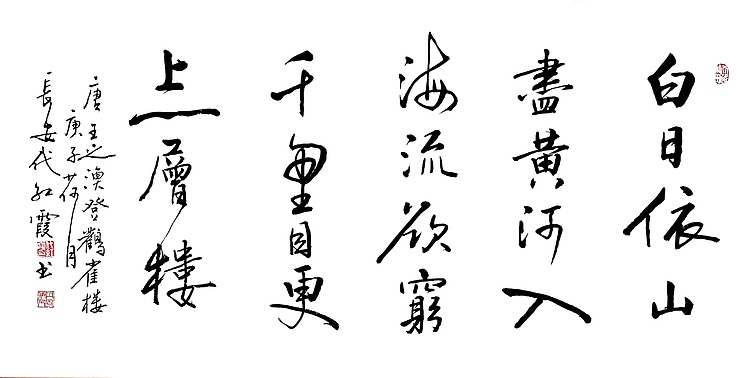 白日依山
盡黄河入
海流欲窮
千里目更
上一層樓
唐王之渙登鸛雀楼
庚子荷月
長安代红霞书